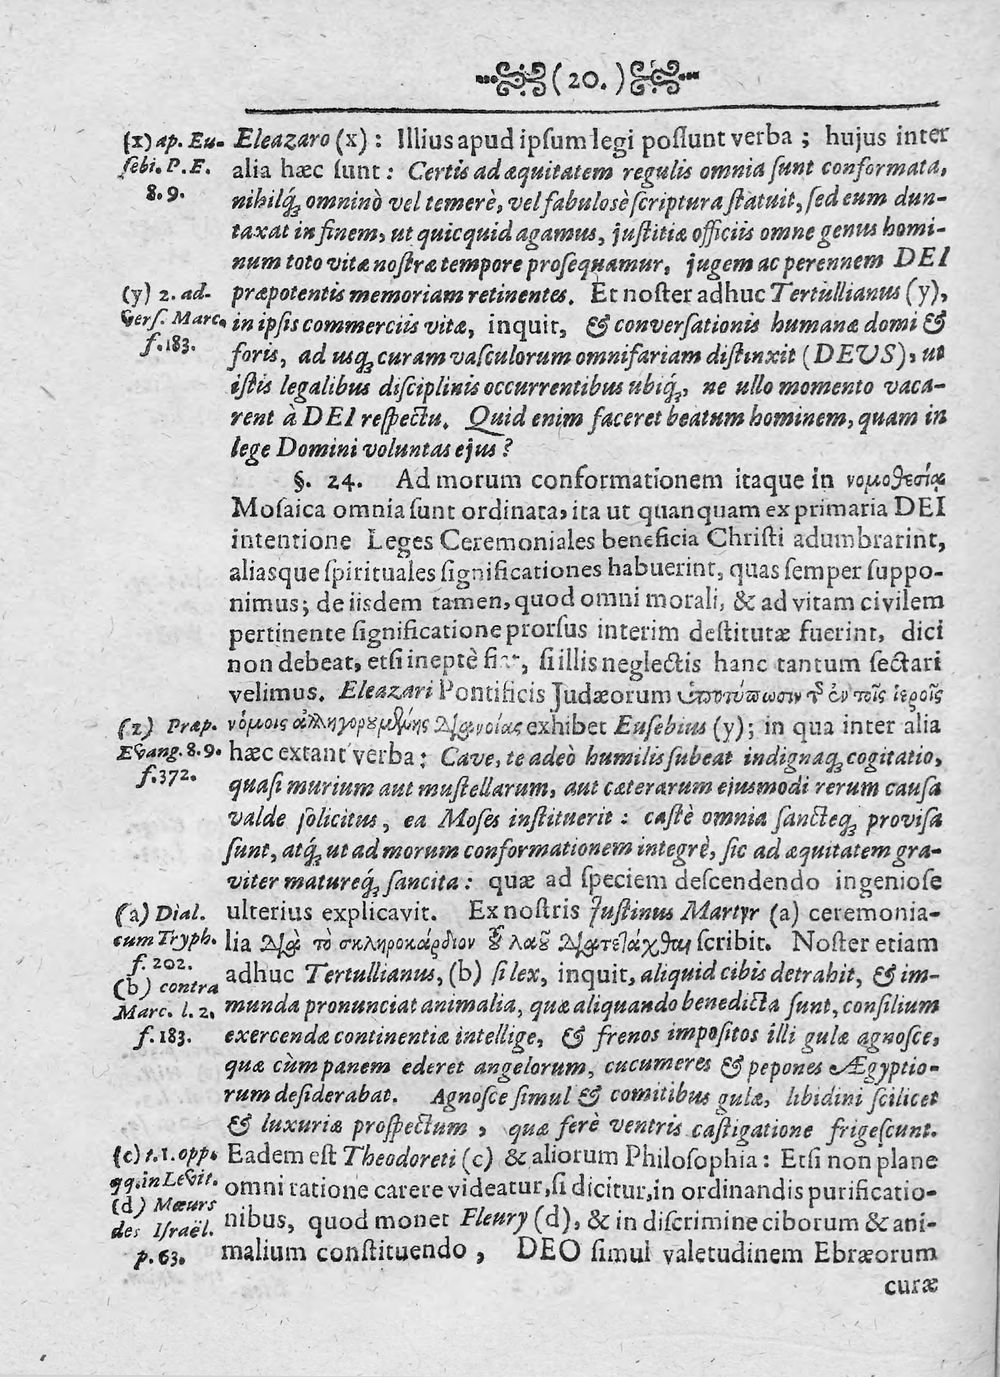 (20.)
(x) ap. Eu-
sebi. P. E.
8. 9.
Eleazaro (x) : Illius apud ipsum legi possunt verba ; hujus inter
alia hæc sunt : Certis ad æquitatem regulis omnia sunt conformata,
nihilq́; omninò vel temerè, vel fabulosè scriptura statuit, sed eum dun-
taxat in finem, ut quicquid agamus, justitiæ officiis omne genus homi-
num toto vitæ nostræ tempore prosequamur, jugem ac perennem DEI
(y) 2. ad-
vers. Marc.
f. 183.
præpotentis memoriam retinentes. Et noster adhuc Tertullianus (y),
in ipsis commerciis vitæ, inquit, & conversationis humanæ domi &
foris, ad usq; curam vasculorum omnifariam distinxit (DEUS), ut
istis legalibus disciplinis occurrentibus ubiq́;, ne ullo momento vaca-
rent à DEI respectu. Quid enim faceret beatum hominem, quam in
lege Domini voluntas ejus ?
§. 24. Ad morum conformationem itaque in νομοθεσίᾳ
Mosaica omnia sunt ordinata, ita ut quanquam ex primaria DEI
intentione Leges Ceremoniales beneficia Christi adumbrarint,
aliasque spirituales significationes habuerint, quas semper suppo-
nimus; de iisdem tamen, quod omni morali, & ad vitam civilem
pertinente significatione prorsus interim destitutæ fuerint, dici
non debeat, etsi ineptè fiat, si illis neglectis hanc tantum sectari
velimus. Eleazari Pontificis Judæorum ὑποτύπωσιν τ̃ ἐν τοῖς ἱεροῖς
(z) Præp.
Evang. 8. 9.
f. 372.
νόμοις ἀλληγορουμένης διανοίας exhibet Eusebius (y); in qua inter alia
hæc extant verba : Cave, te adeò humilis subeat indignaq; cogitatio,
quasi murium aut mustellarum, aut cæterarum ejusmodi rerum causa
valde solicitus, ea Moses instituerit : castè omnia sancteq; provisa
sunt, atq́; ut ad morum conformationem integrè, sic ad æquitatem gra-
viter matureq́; sancita : quæ ad speciem descendendo ingeniose
(a) Dial.
cum Tryph.
f. 202.
(b) contra
Marc. l. 2.
f. 183.
ulterius explicavit. Ex nostris Justinus Martyr (a) ceremonia-
lia διὰ τὸ σκληροκάρδιον τοῦ λαοῦ διατετάχθαι scribit. Noster etiam
adhuc Tertullianus, (b) si lex, inquit, aliquid cibis detrahit, & im-
munda pronunciat animalia, quæ aliquando benedicta sunt, consilium
exercendæ continentiæ intellige, & frenos impositos illi gulæ agnosce,
quæ cùm panem ederet angelorum, cucumeres & pepones Ægyptio-
rum desiderabat. Agnosce simul & comitibus gulæ, libidini scilicet
& luxuriæ prospectum , quæ ferè ventris castigatione frigescunt.
(c) t. 1. opp.
qq. in Levit.
(d) Mœurs
des Israël.
p. 63.
Eadem est Theodoreti (c) & aliorum Philosophia : Etsi non plane
omni ratione carere videatur, si dicitur, in ordinandis purificatio-
nibus, quod monet Fleury (d), & in discrimine ciborum & ani-
malium constituendo , DEO simul valetudinem Ebræorum
curæ